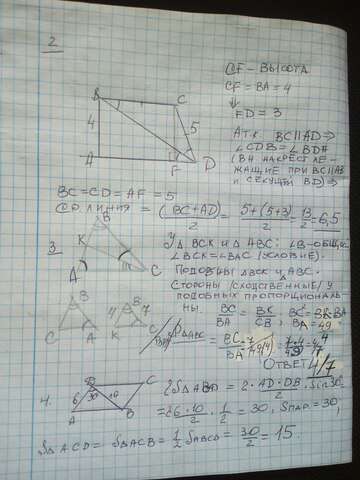 2
CF – ВЫСОТА
CF = BA = 4
⇓
FD = 3
B
C
4
5
A
F
D
А т.к BC||AD ⇒
∠CDB = ∠BDA
(ВН НАКРЕСТ ЛЕ-
ЖАЩИЕ ПРИ BC||AD
И СЕКУЩЕЙ BD) ⇒
BC = CD = AF = 5
СР ЛИНИЯ = (BC+AD)/2 = 5+(5+3)/2 = 13/2 = 6,5
3
B
K
A
C
У △ BCK и △ ABC: ∠B - ОБЩИЙ
∠BCK = ∠BAC /УСЛОВИЕ/.
ПОДОБНЫ △BCK и △ABC.
СТОРОНЫ /СХОДСТВЕННЫЕ/ У
ПОДОБНЫХ ПРОПОРЦИОНАЛЬ-
НЫ.
BC/BA = BK/CB; BC² = BK·BA
B
C
A
B
4
7
K
C
ОТВЕТ 4/7
4.
B
C
6
30
10
A
2S△ABD = 2·AD·DB·sin30°/2
= 6·10/2 · 1/2 = 30, Sпар. = 30,
S△ACD = S△ACB = 1/2 SABCD = 30/2 = 15.